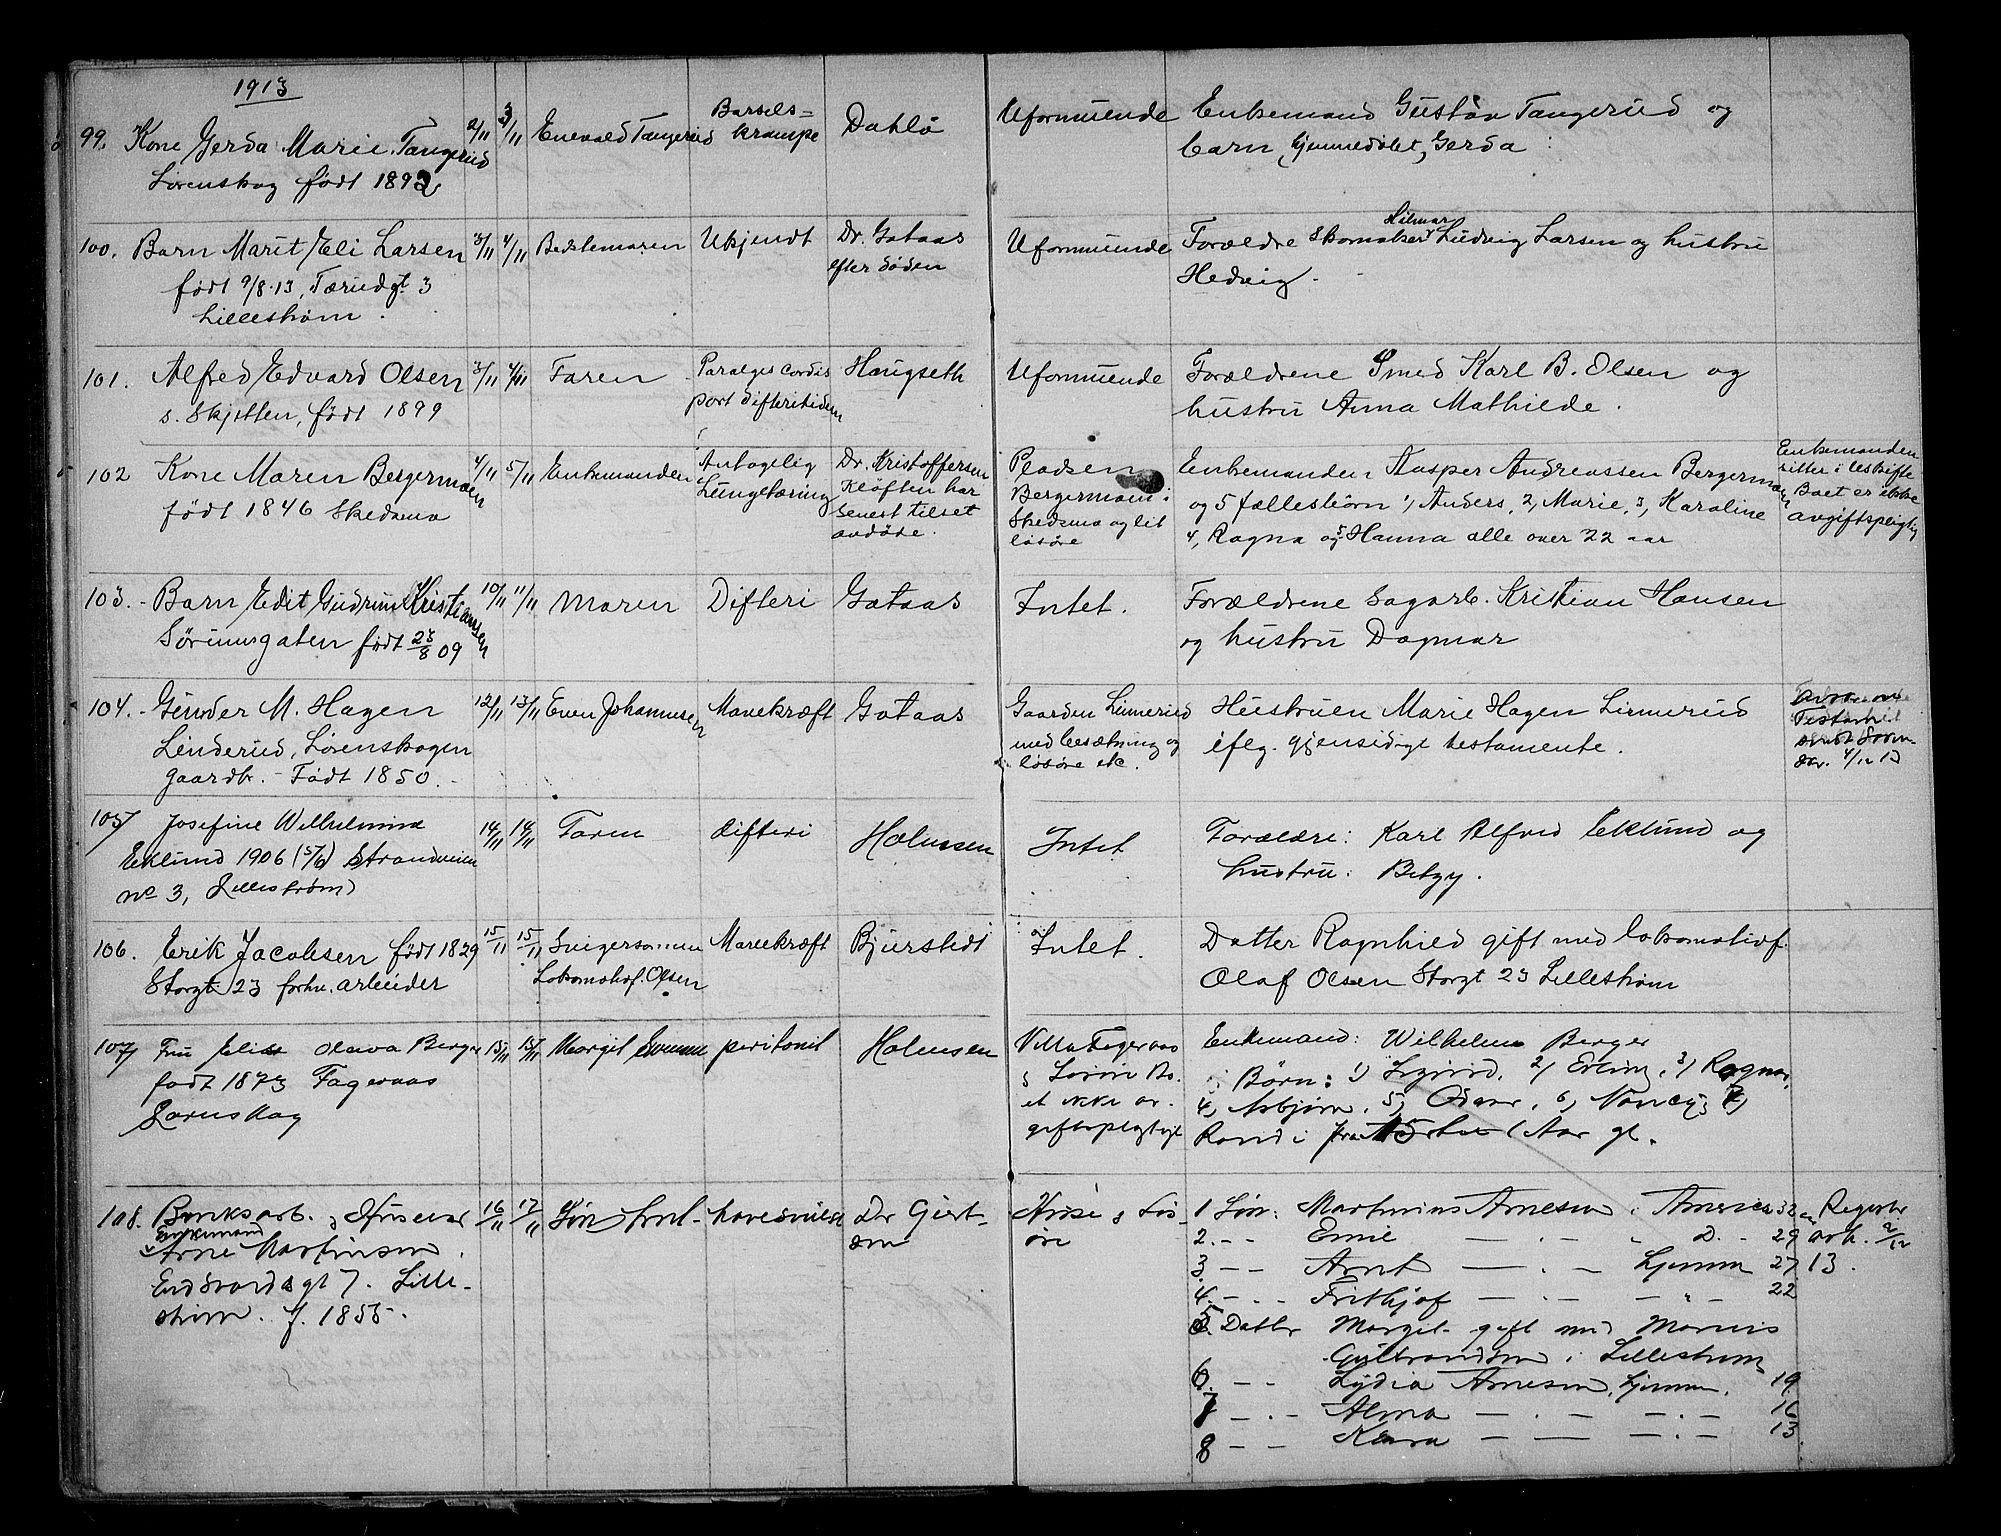 1913
99. Kone Gerda Marie Tangerud
Lørenskog født 1892
2/11 3/11
Enevald Tangerud
Barsels=
krampe
Dahlø
Uformuende
Enkemand Gustav Tangerud og
barn, hjemmedøbt, Gerda
100. Barn Marit Eli Larsen
født 9/8-13, Tærudgt 3
Lillestrøm.
3/11 4/11
Bedstemoren
Ukjendt
Dr. Gotaas
efter døden
Uformuende
Forældre Skomaker Hilmar Ludvig Larsen og hustru
Hedvig.
101. Alfred Edvard Olsen
s. Skjetten, født 1899
3/11 4/11
Faren
Paralges Cordis
port difteritidem
Haugseth
Uformuende
Forældrene Smed Karl B. Olsen og
hustru Anna Mathilde.
102 Kone Maren Bergermoen
født 1846 Skedsmo
4/11 5/11
Enkemanden
Antagelig
Lungetæring
Dr. Kristoffersen
Kløften har
senest tilset
avdøde.
Pladsen
Bergermoen i
Skedsmo og lit
løsøre
Enkemanden Kasper Andreassen Bergermoen
og 5 fællesbørn 1, Anders, 2, Marie, 3, Karoline
4, Ragna og 5, Hanna alle over 22 aar
Enkemanden
sitter i uskifte
Boet er ikke
avgiftspligtig
103. - Barn Edit Gudrun Kristiansen
Sørumsgaten født 23/8 09
10/11 11/11
Moren
Difteri
Gotaas
Intet.
Forældrene Sagarb. Kristian Hansen
og hustru Dagmar
104. - Gunder M. Hagen
Linderud, Lørenskogen
gaardbr. - Født 1850. -
12/11 13/11
Even Johannesen
Mavekræft
Gotaas
Gaarden Linnerud
med besætning og
løsøre etc.
Hustruen Marie Hagen Linnerud
iflg. gjensidige testamente.
4/12 13
105 Josefine Wilhelmine
Eklund 1906 (5/6) Strandveien
No 3, Lillestrøm)
14/11 14/11
Faren
difteri
Holmsen
Intet
Forældre: Karl Alfred Eklund og
hustru: Betzy.
106. Erik Jacobsen født 1829
Storgt 23 forhv. arbeider
15/11 15/11
Svigersønnen
Lokomotivf. Olsen
Mavekræft
Bjurstedt
Intet.
Datter Ragnhild gift med lokomotivf.
Olaf Olsen Storgt 23 Lillestrøm
107 Fru Elise Olava Berger
født 1873 Fagernaas
Lørenskog
15/11 15/11
Margit
peritonit
Holmsen
Villa Fagernaas
& Løsøre Bo.
et ikke av.
giftspligtigt
Enkemand: Wilhelm Berger
Børn: 1) Sigurd, 2) Erling, 3) Ragna,
4, Asbjørn, 5, Odvar, 6, Nancy, 7,
Randi fra 15 til 1 Aar gl.
108. Bruksarb. & Huseier
Enkemand
Arne Martinsen
Eidsvoldsgt 7. Lille-
strøm. f. 1855.
16/11 17/11
Søn Arnt
Dr Giert-
sen
Huse & Løs-
øre
1 Søn: Martinius Arnesen i America 32
2. - - Emil — . — " D. - 29
3 - - Arnt — . — hjemme 27
4. - . - Frithjof — . — — " — 22
5. Datter Margit gift med Marius
Gulbrandsen i Lillestrøm
6. - - Lydia Arnesen, hjemme. 19
7 - . - Alma — . — — . — 16
8 - - Klara — — — . — 13
Registr
ark. 2/12
13.